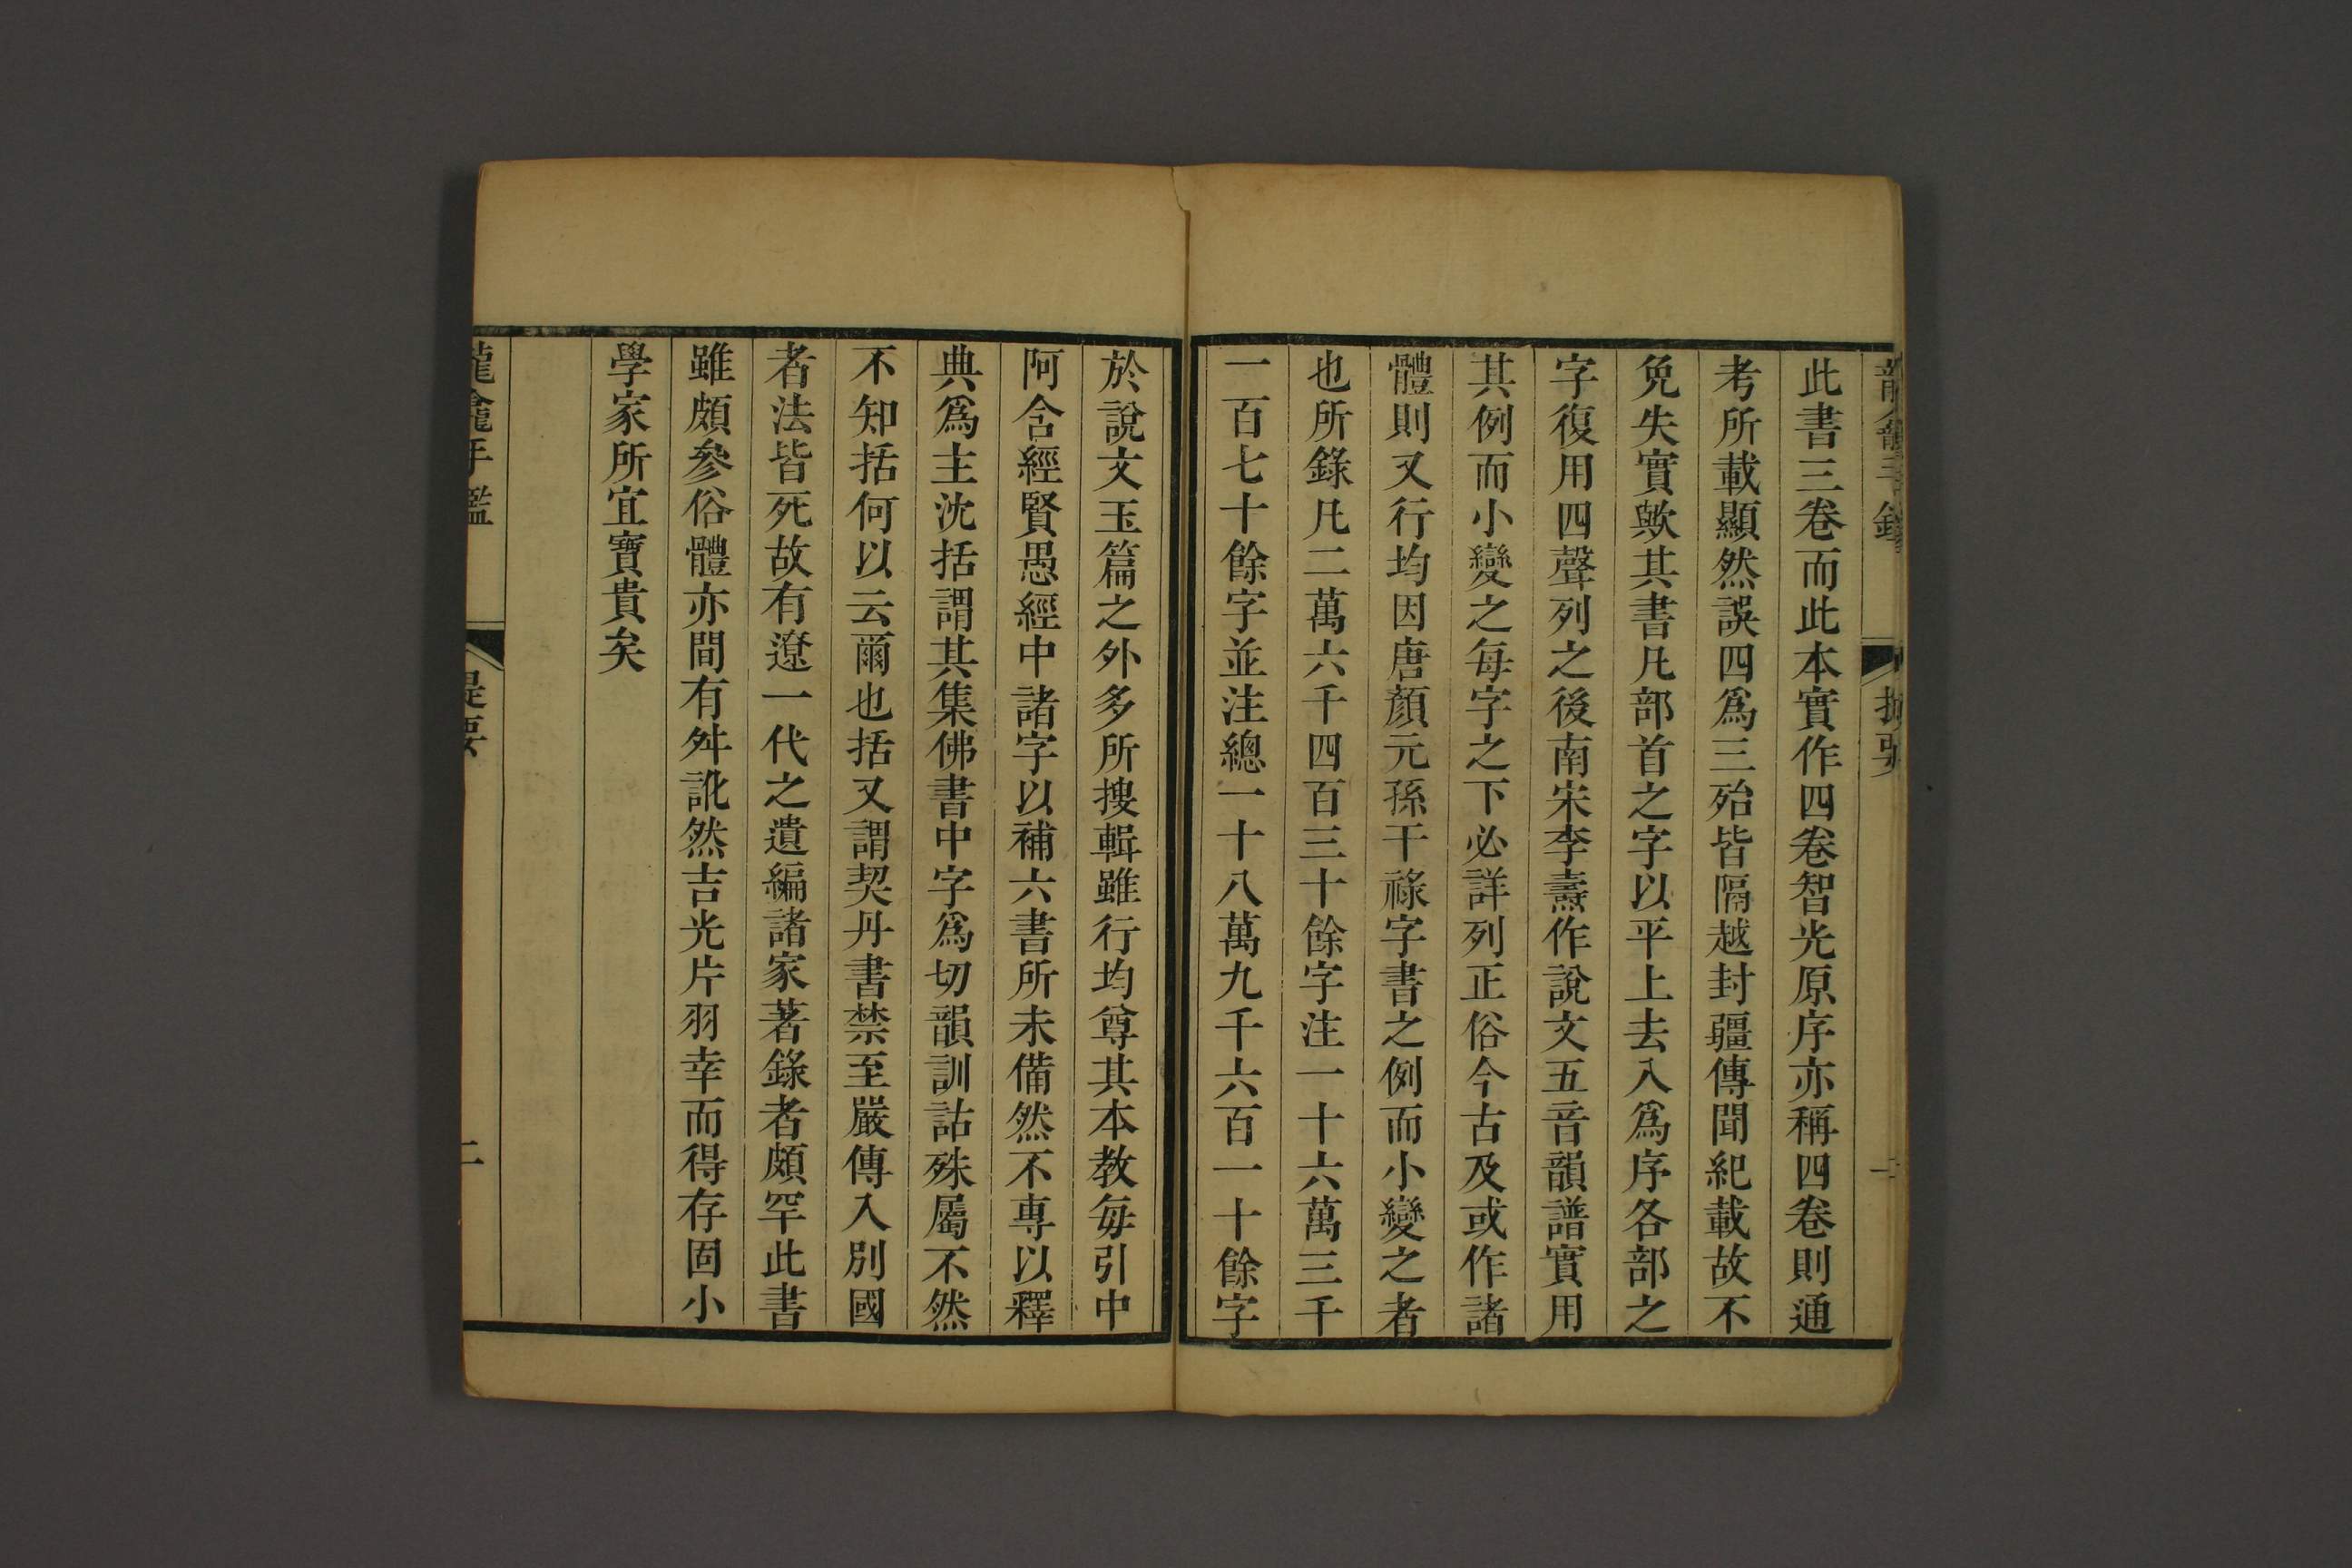 此書三卷而此本實作四卷智光原序亦稱四卷則通
考所載顯然誤四爲三殆皆隔越封疆傳聞紀載故不
免失實歟其書凡部首之字以平上去入爲序各部之
字復用四聲列之後南宋李燾作說文五音韻譜實用
其例而小變之每字之下必詳列正俗今古及或作諸
體則又行均因唐顏元孫干祿字書之例而小變之者
也所錄凡二萬六千四百三十餘字注一十六萬三千
一百七十餘字並注總一十八萬九千六百一十餘字
於說文玉篇之外多所搜輯雖行均尊其本教每引中
阿含經賢愚經中諸字以補六書所未備然不專以釋
典爲主沈括謂其集佛書中字爲切韻訓詁殊屬不然
不知括何以云爾也括又謂契丹書禁至嚴傳入別國
者法皆死故有遼一代之遺編諸家著錄者頗罕此書
雖頗參俗體亦間有舛訛然吉光片羽幸而得存固小
學家所宜寶貴矣
龍龕手鑑 提要 二